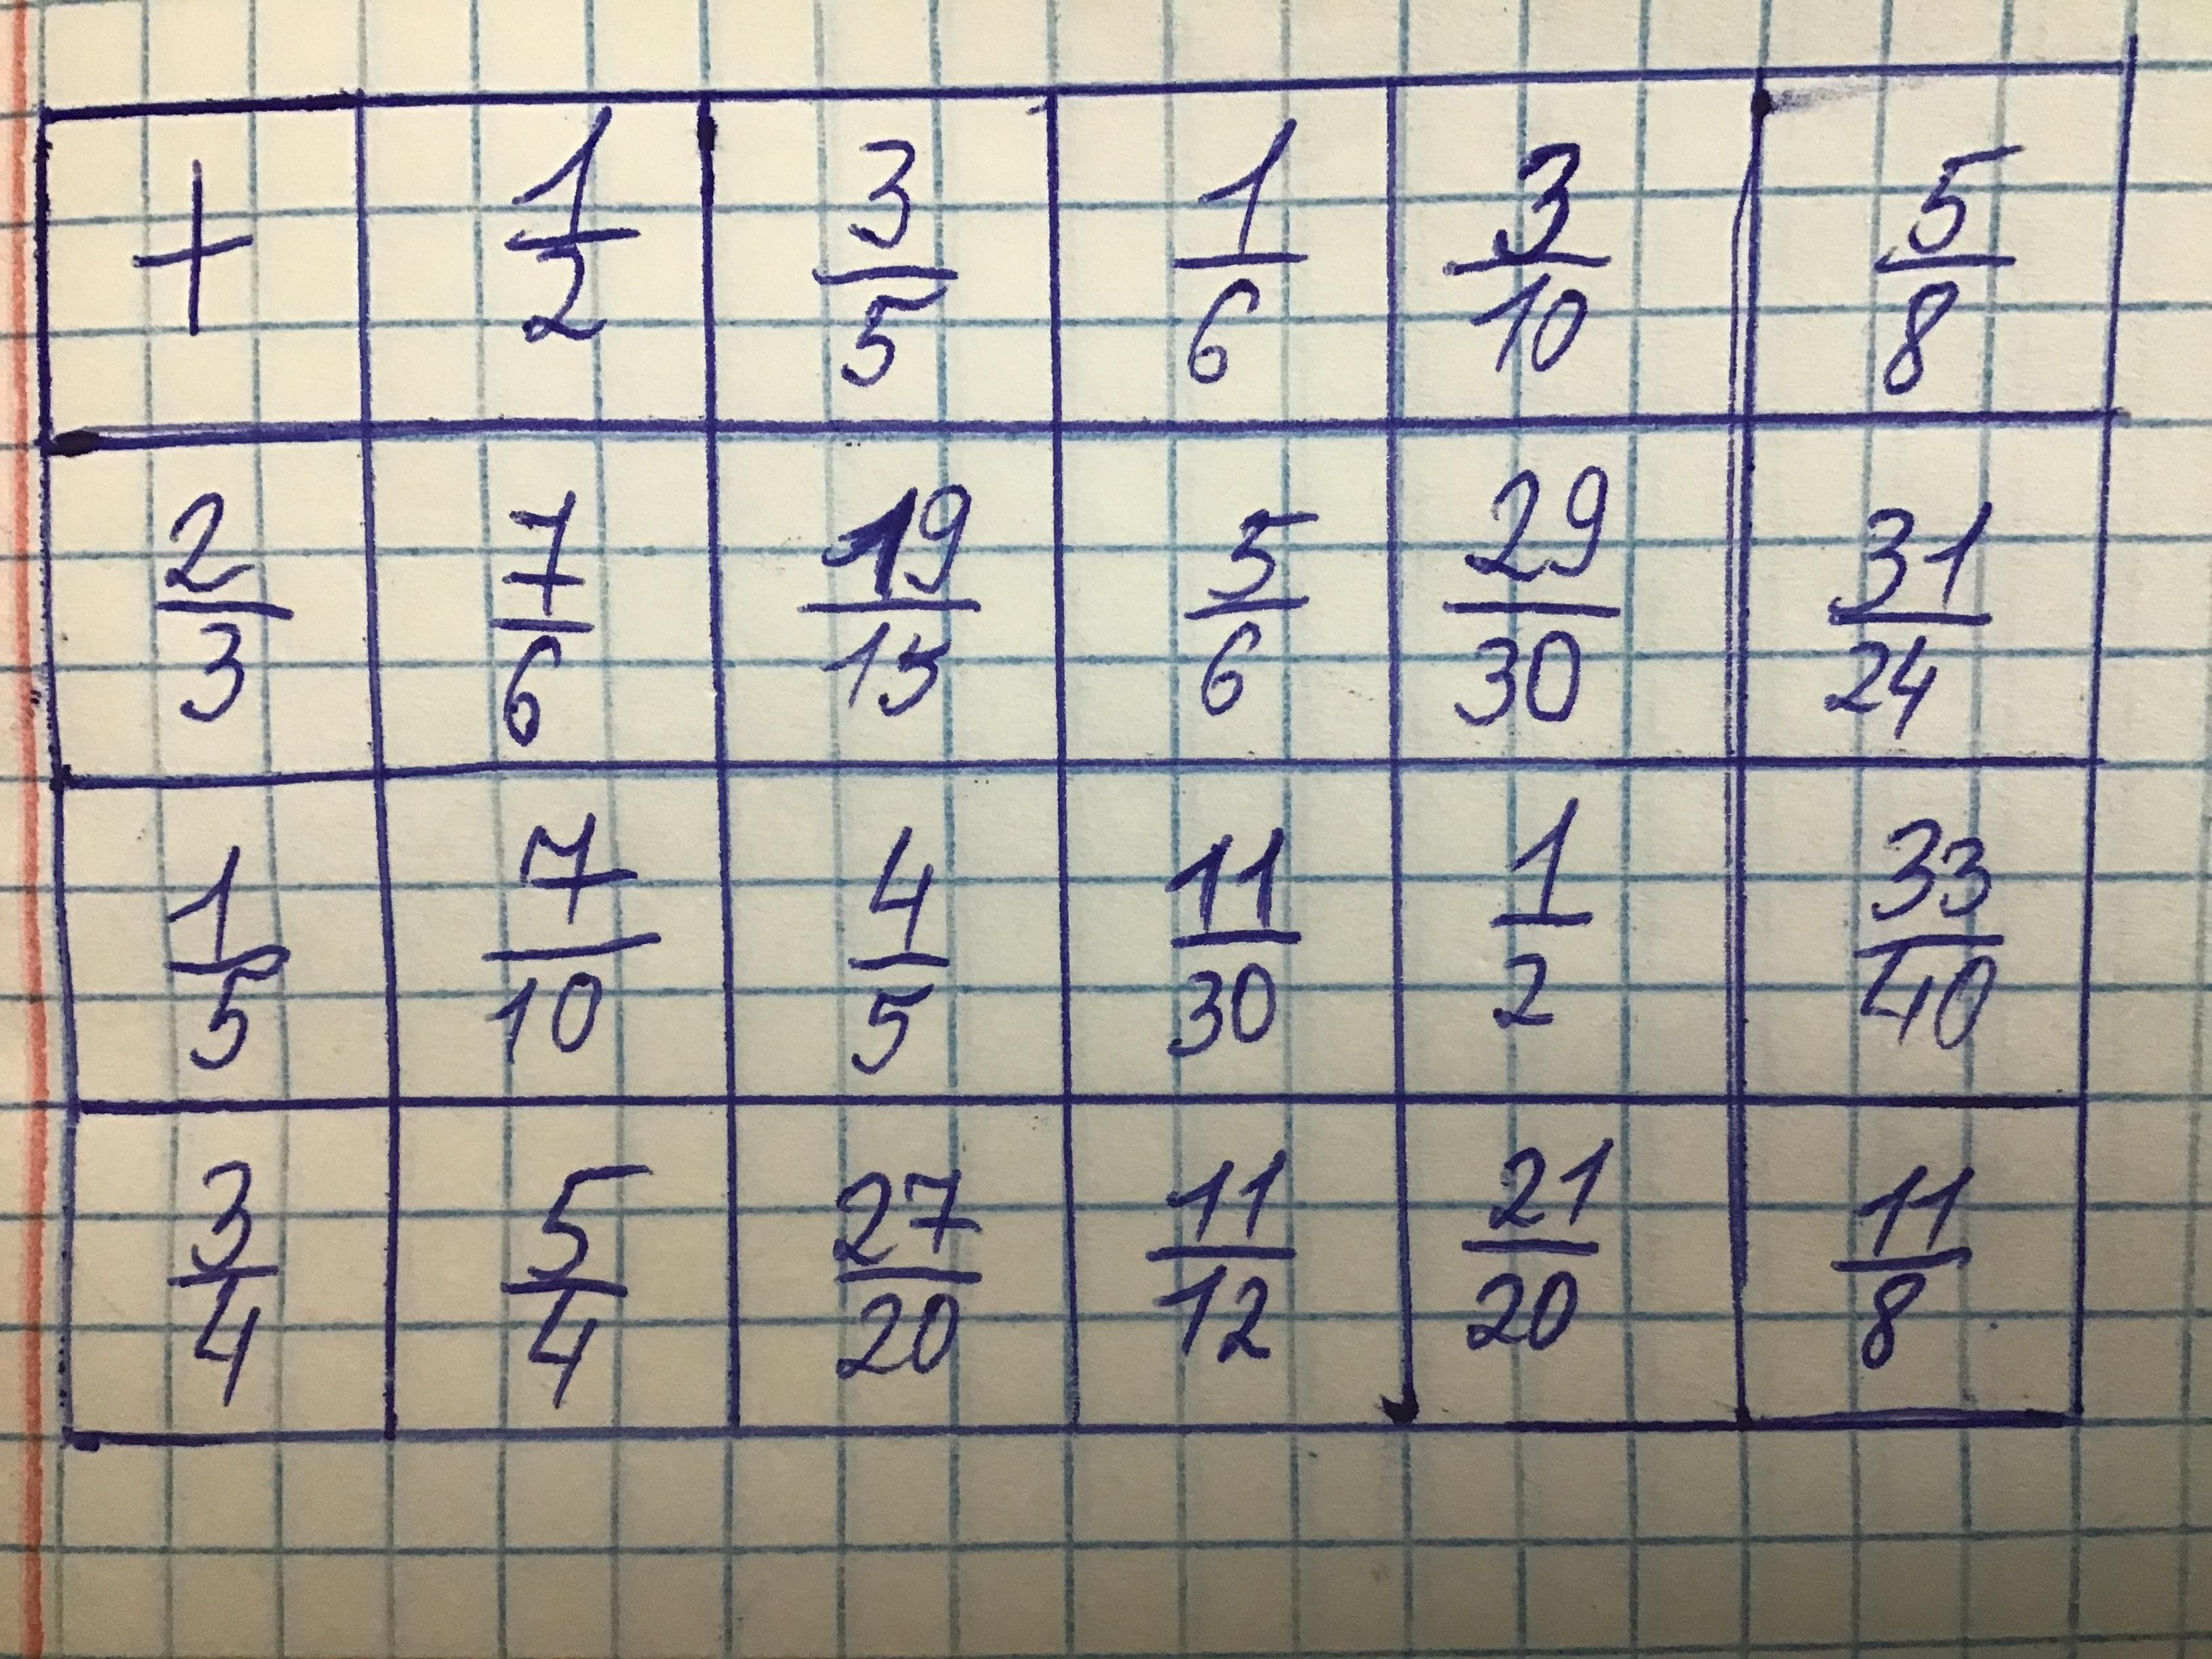 + 1/2 3/5 1/6 3/10 5/8
2/3 7/6 19/15 5/6 29/30 31/24
1/5 7/10 4/5 11/30 1/2 33/40
3/4 5/4 27/20 11/12 21/20 11/8